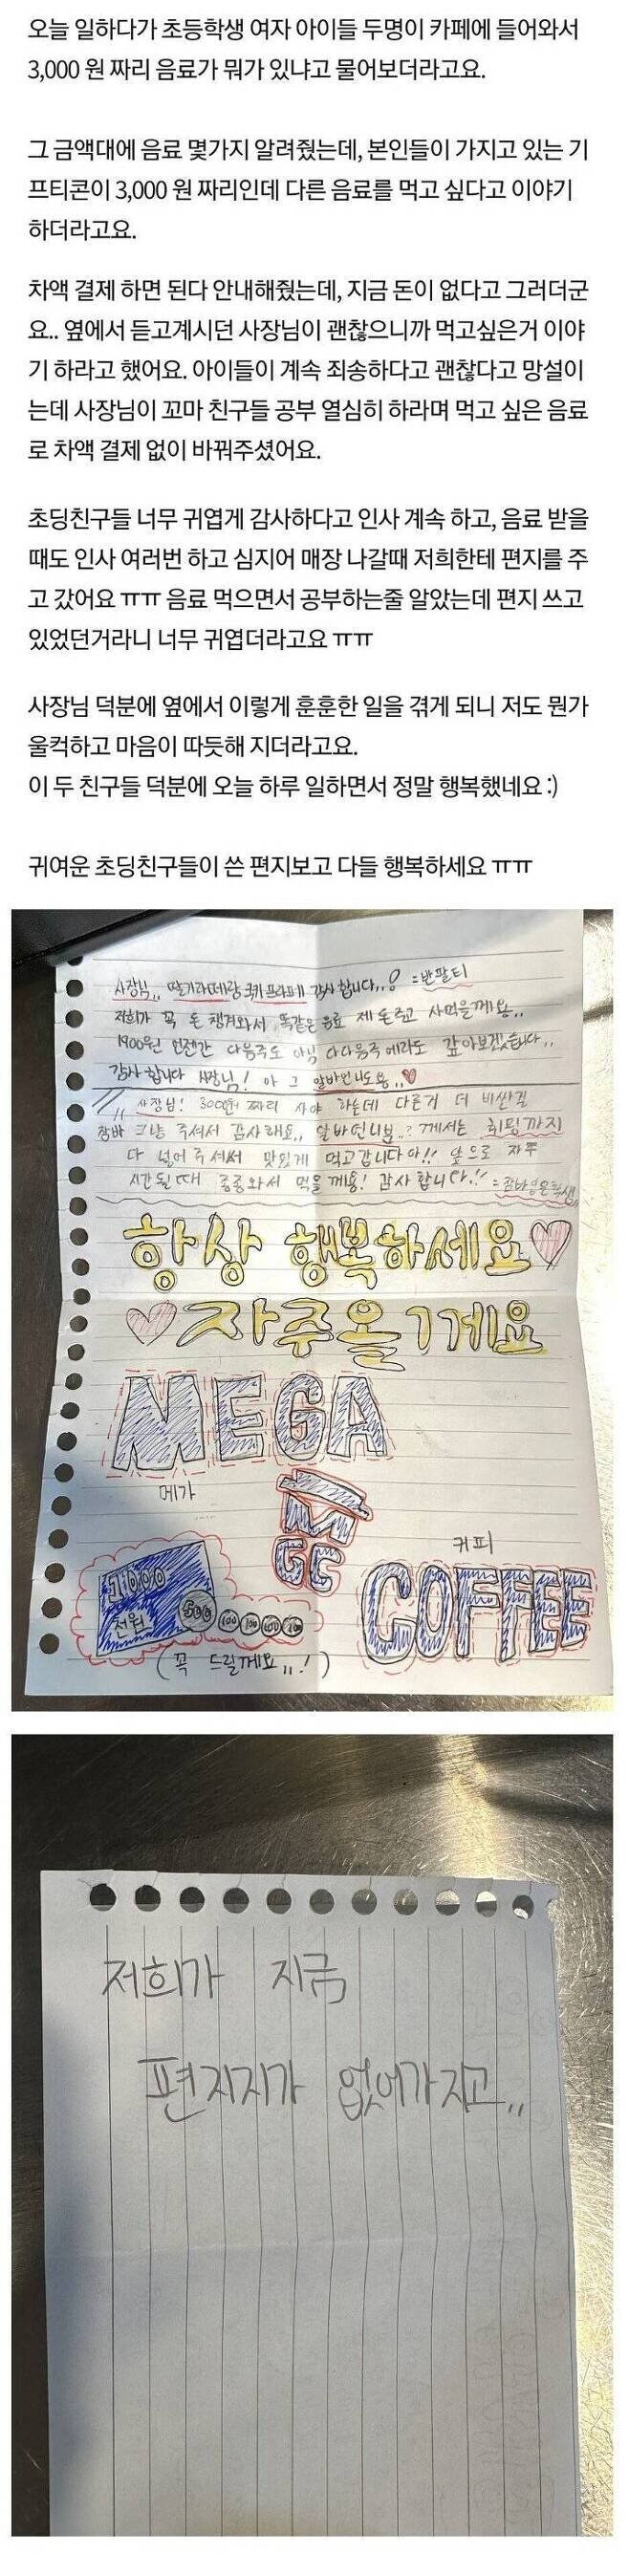 오늘 일하다가 초등학생 여자 아이들 두명이 카페에 들어와서
3,000 원 짜리 음료가 뭐가 있냐고 물어보더라고요.
그 금액대에 음료 몇가지 알려줬는데, 본인들이 가지고 있는 기
프티콘이 3,000 원 짜리인데 다른 음료를 먹고 싶다고 이야기
하더라고요.
차액 결제 하면 된다 안내해줬는데, 지금 돈이 없다고 그러더군
요.. 옆에서 듣고계시던 사장님이 괜찮으니까 먹고싶은거 이야
기 하라고 했어요. 아이들이 계속 죄송하다고 괜찮다고 망설이
는데 사장님이 꼬마 친구들 공부 열심히 하라며 먹고 싶은 음료
로 차액 결제 없이 바꿔주셨어요.
초딩친구들 너무 귀엽게 감사하다고 인사 계속 하고, 음료 받을
때도 인사 여러번 하고 심지어 매장 나갈때 저희한테 편지를 주
고 갔어요 ㅠㅠ 음료 먹으면서 공부하는줄 알았는데 편지 쓰고
있었던거라니 너무 귀엽더라고요 ㅠㅠ
사장님 덕분에 옆에서 이렇게 훈훈한 일을 겪게 되니 저도 뭔가
울컥하고 마음이 따듯해 지더라고요.
이 두 친구들 덕분에 오늘 하루 일하면서 정말 행복했네요 :)
귀여운 초딩친구들이 쓴 편지보고 다들 행복하세요 ㅠㅠ
사장님,, 딸기라떼랑 쿠키프라페 감사합니다..! =반팔티
저희가 꼭 돈 챙겨와서 똑같은 음료 제 돈주고 사먹을께요..
1900원 언젠간 다음주도 아님 다다음주에라도 갚아보겠습니다..
감사합니다 사장님! 아 그 알바언니도용..♥
사장님! 3000원 짜리 사야 하는데 다른거 더 비싼걸
그냥 주셔서 감사해요.. 알바언니분..? 께서는 휘핑까지
다 넣어주셔서 맛있게 먹고갑니다아!! 앞으로 자주
시간될때 종종와서 먹을께용! 감사합니다!!
항상 행복하세요♥
♥자주올게요
MEGA
메가
M
GC
커피
COFFEE
1000
천원
500 100 100 100 100
(꼭 드릴께요,,!)
저희가 지금
편지지가 없어가지고..